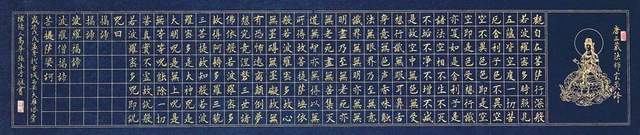 唐三藏法師玄奘譯
觀自在菩薩行深般
若波羅蜜多時照見
五蘊皆空度一切苦
厄舍利子色不異空
空不異色色即是空
空即是色受想行識
亦復如是舍利子是
諸法空相不生不滅
不垢不淨不增不減
是故空中無色無受
想行識無眼耳鼻舌
身意無色聲香味觸
法無眼界乃至無意
識界無無明亦無無
明盡乃至無老死亦
無老死盡無苦集滅
道無智亦無得以無
所得故菩提薩埵依
般若波羅蜜多故心
無罣礙無罣礙故無
有恐怖遠離顛倒夢
想究竟涅槃三世諸
佛依般若波羅蜜多
故得阿耨多羅三藐
三菩提故知般若波
羅蜜多是大神咒是
大明咒是無上咒是
無等等咒能除一切
苦真實不虛故說般
若波羅蜜多咒即說
咒曰
揭諦揭諦
波羅揭諦
波羅僧揭諦
菩提薩婆訶
古城西安大雁塔
敬書